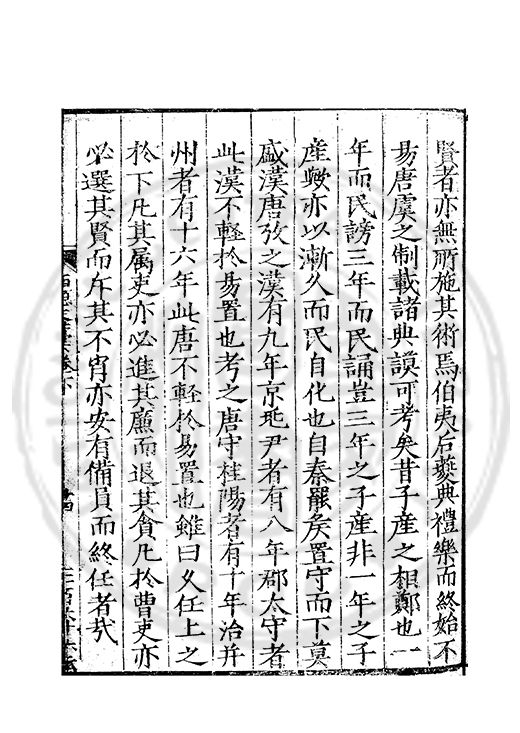 賢者亦無所施其術焉伯夷后夔典禮樂而終始不
易唐虞之制載諸典謨可考矣昔子産之相鄭也一
年而民謗三年而民誦豈三年之子産非一年之子
産歟亦以漸久而民自化也自秦罷矦置守而下莫
盛漢唐攷之漢有九年京兆尹者有八年郡太守者
此漢不輕扵易置也考之唐守桂陽者有十年治并
州者有十六年此唐不輕扵易置也雖曰久任上之
扵下凢其属吏亦必進其廉而退其貪凢扵曹吏亦
必選其賢而斥其不肖亦安有備員而終任者㢤
卷下